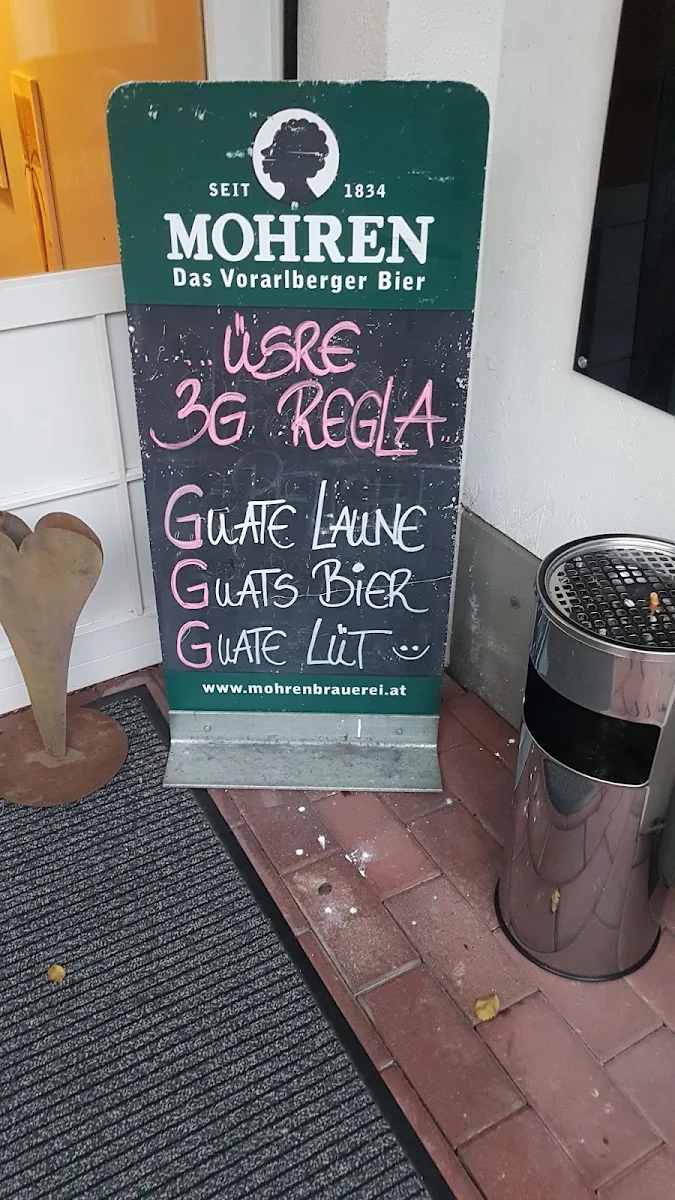 SEIT 1834
MOHREN
Das Vorarlberger Bier
... ÜSRE
3G REGLA...
GUATE LAUNE
GUATS BIER
GUATE LÜT :)
www.mohrenbrauerei.at